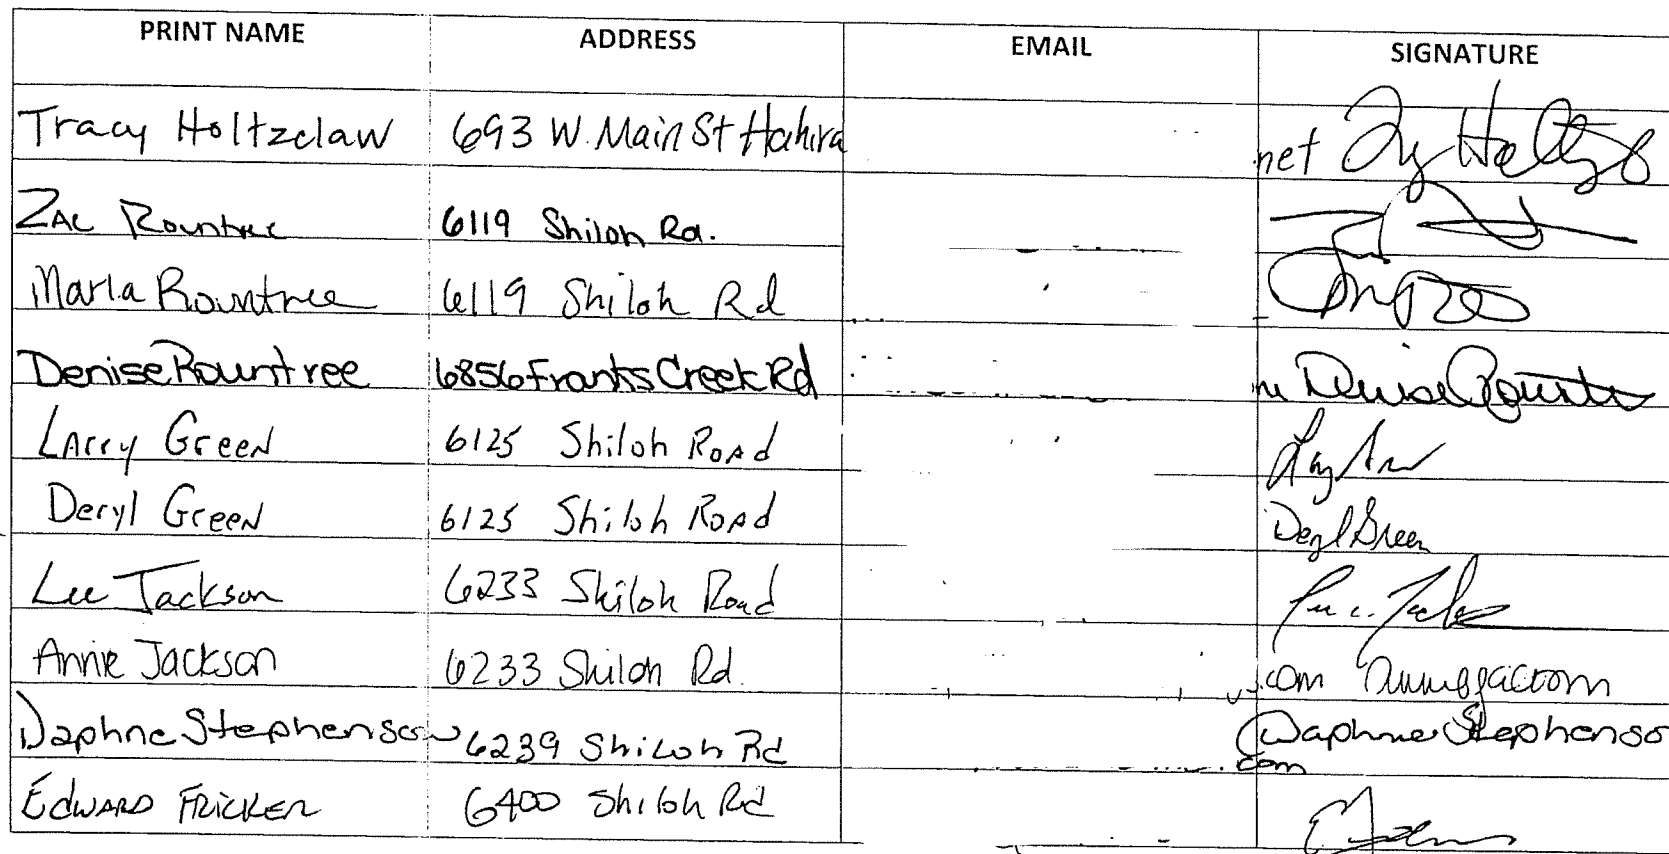 PRINT NAME ADDRESS EMAIL SIGNATURE
Tracy Holtzclaw 693 W. Main St Hahira net
Zac Rountree 6119 Shiloh Rd.
Marla Rountree 6119 Shiloh Rd
Denise Rountree 6856 Franks Creek Rd Denise
Larry Green 6125 Shiloh Road
Deryl Green 6125 Shiloh Road Deryl Green
Lee Jackson 6233 Shiloh Road
Annie Jackson 6233 Shiloh Rd. .com
Daphne Stephenson 6239 Shiloh Rd Daphne Stephenso
com
Edward Fricker 6400 Shiloh Rd